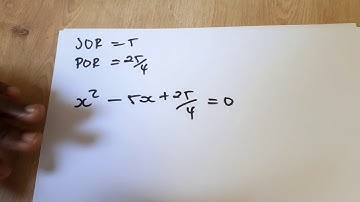 SOR = 5
POR = 25/4
x² - 5x + 25/4 = 0